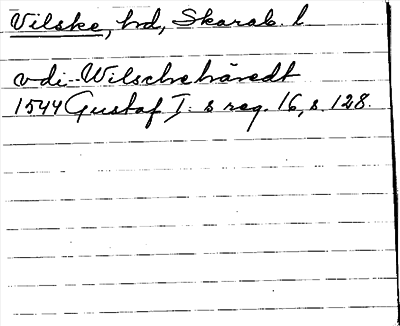 Vilske, hd, Skarab. l.
vdi Wilschehäredt
1544 Gustaf I. s reg. 16, s. 128.